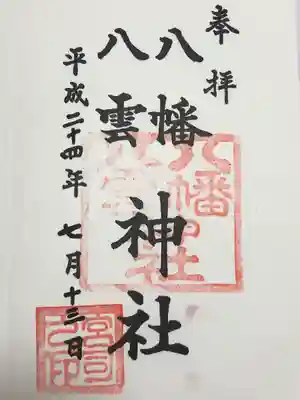 奉拝
八幡
八雲
神社
平成二十四年 七月十三日
八幡
八雲
神社
宮司之印